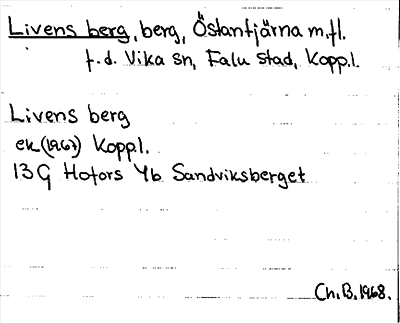 Livens berg, berg, Östantjärna m.fl.
f.d. Vika sn, Falu stad, Kopp.l.
Livens berg
ek (1967) Kopp.l.
13 G Hofors 4b Sandviksberget
Ch.B. 1968.